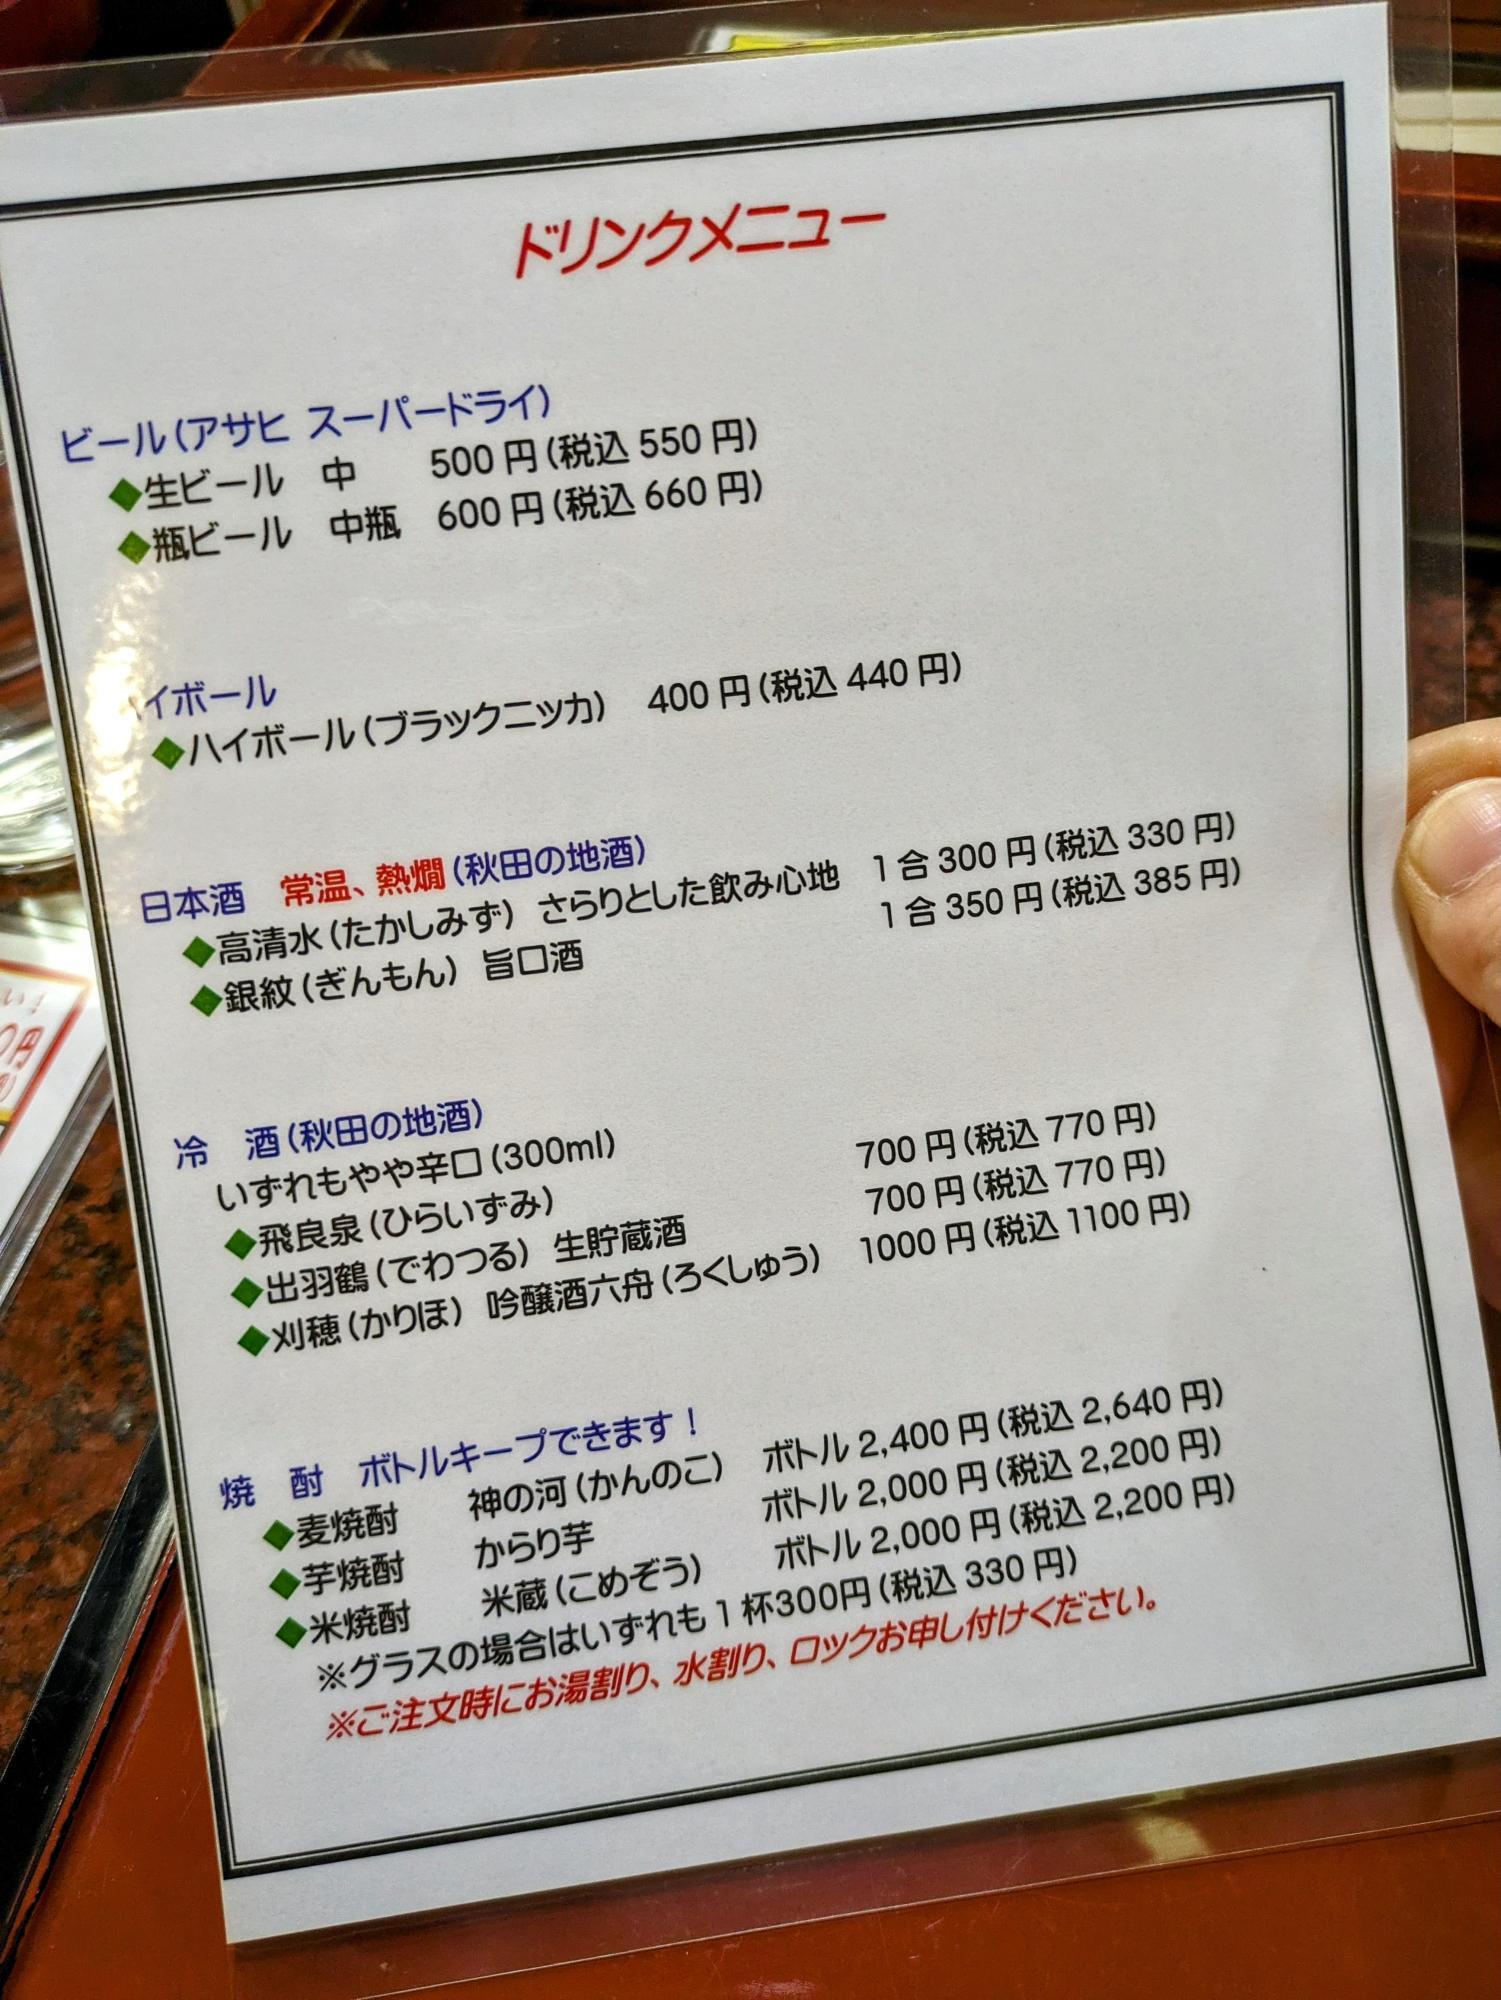 ドリンクメニュー
ビール(アサヒ スーパードライ)
◆生ビール 中 500円(税込550円)
◆瓶ビール 中瓶 600円(税込660円)
イボール
◆ハイボール(ブラックニッカ) 400円(税込440円)
日本酒 常温、熱燗(秋田の地酒)
◆高清水(たかしみず) さらりとした飲み心地 1合300円(税込330円)
◆銀紋(ぎんもん) 旨口酒 1合350円(税込385円)
冷 酒(秋田の地酒)
いずれもやや辛口(300ml)
◆飛良泉(ひらいずみ) 700円(税込770円)
◆出羽鶴(でわつる) 生貯蔵酒 700円(税込770円)
◆刈穂(かりほ) 吟醸酒六舟(ろくしゅう) 1000円(税込1100円)
焼 酎 ボトルキープできます！
◆麦焼酎 神の河(かんのこ) ボトル2,400円(税込2,640円)
◆芋焼酎 からり芋 ボトル2,000円(税込2,200円)
◆米焼酎 米蔵(こめぞう) ボトル2,000円(税込2,200円)
※グラスの場合はいずれも1杯300円(税込330円)
※ご注文時にお湯割り、水割り、ロックお申し付けください。